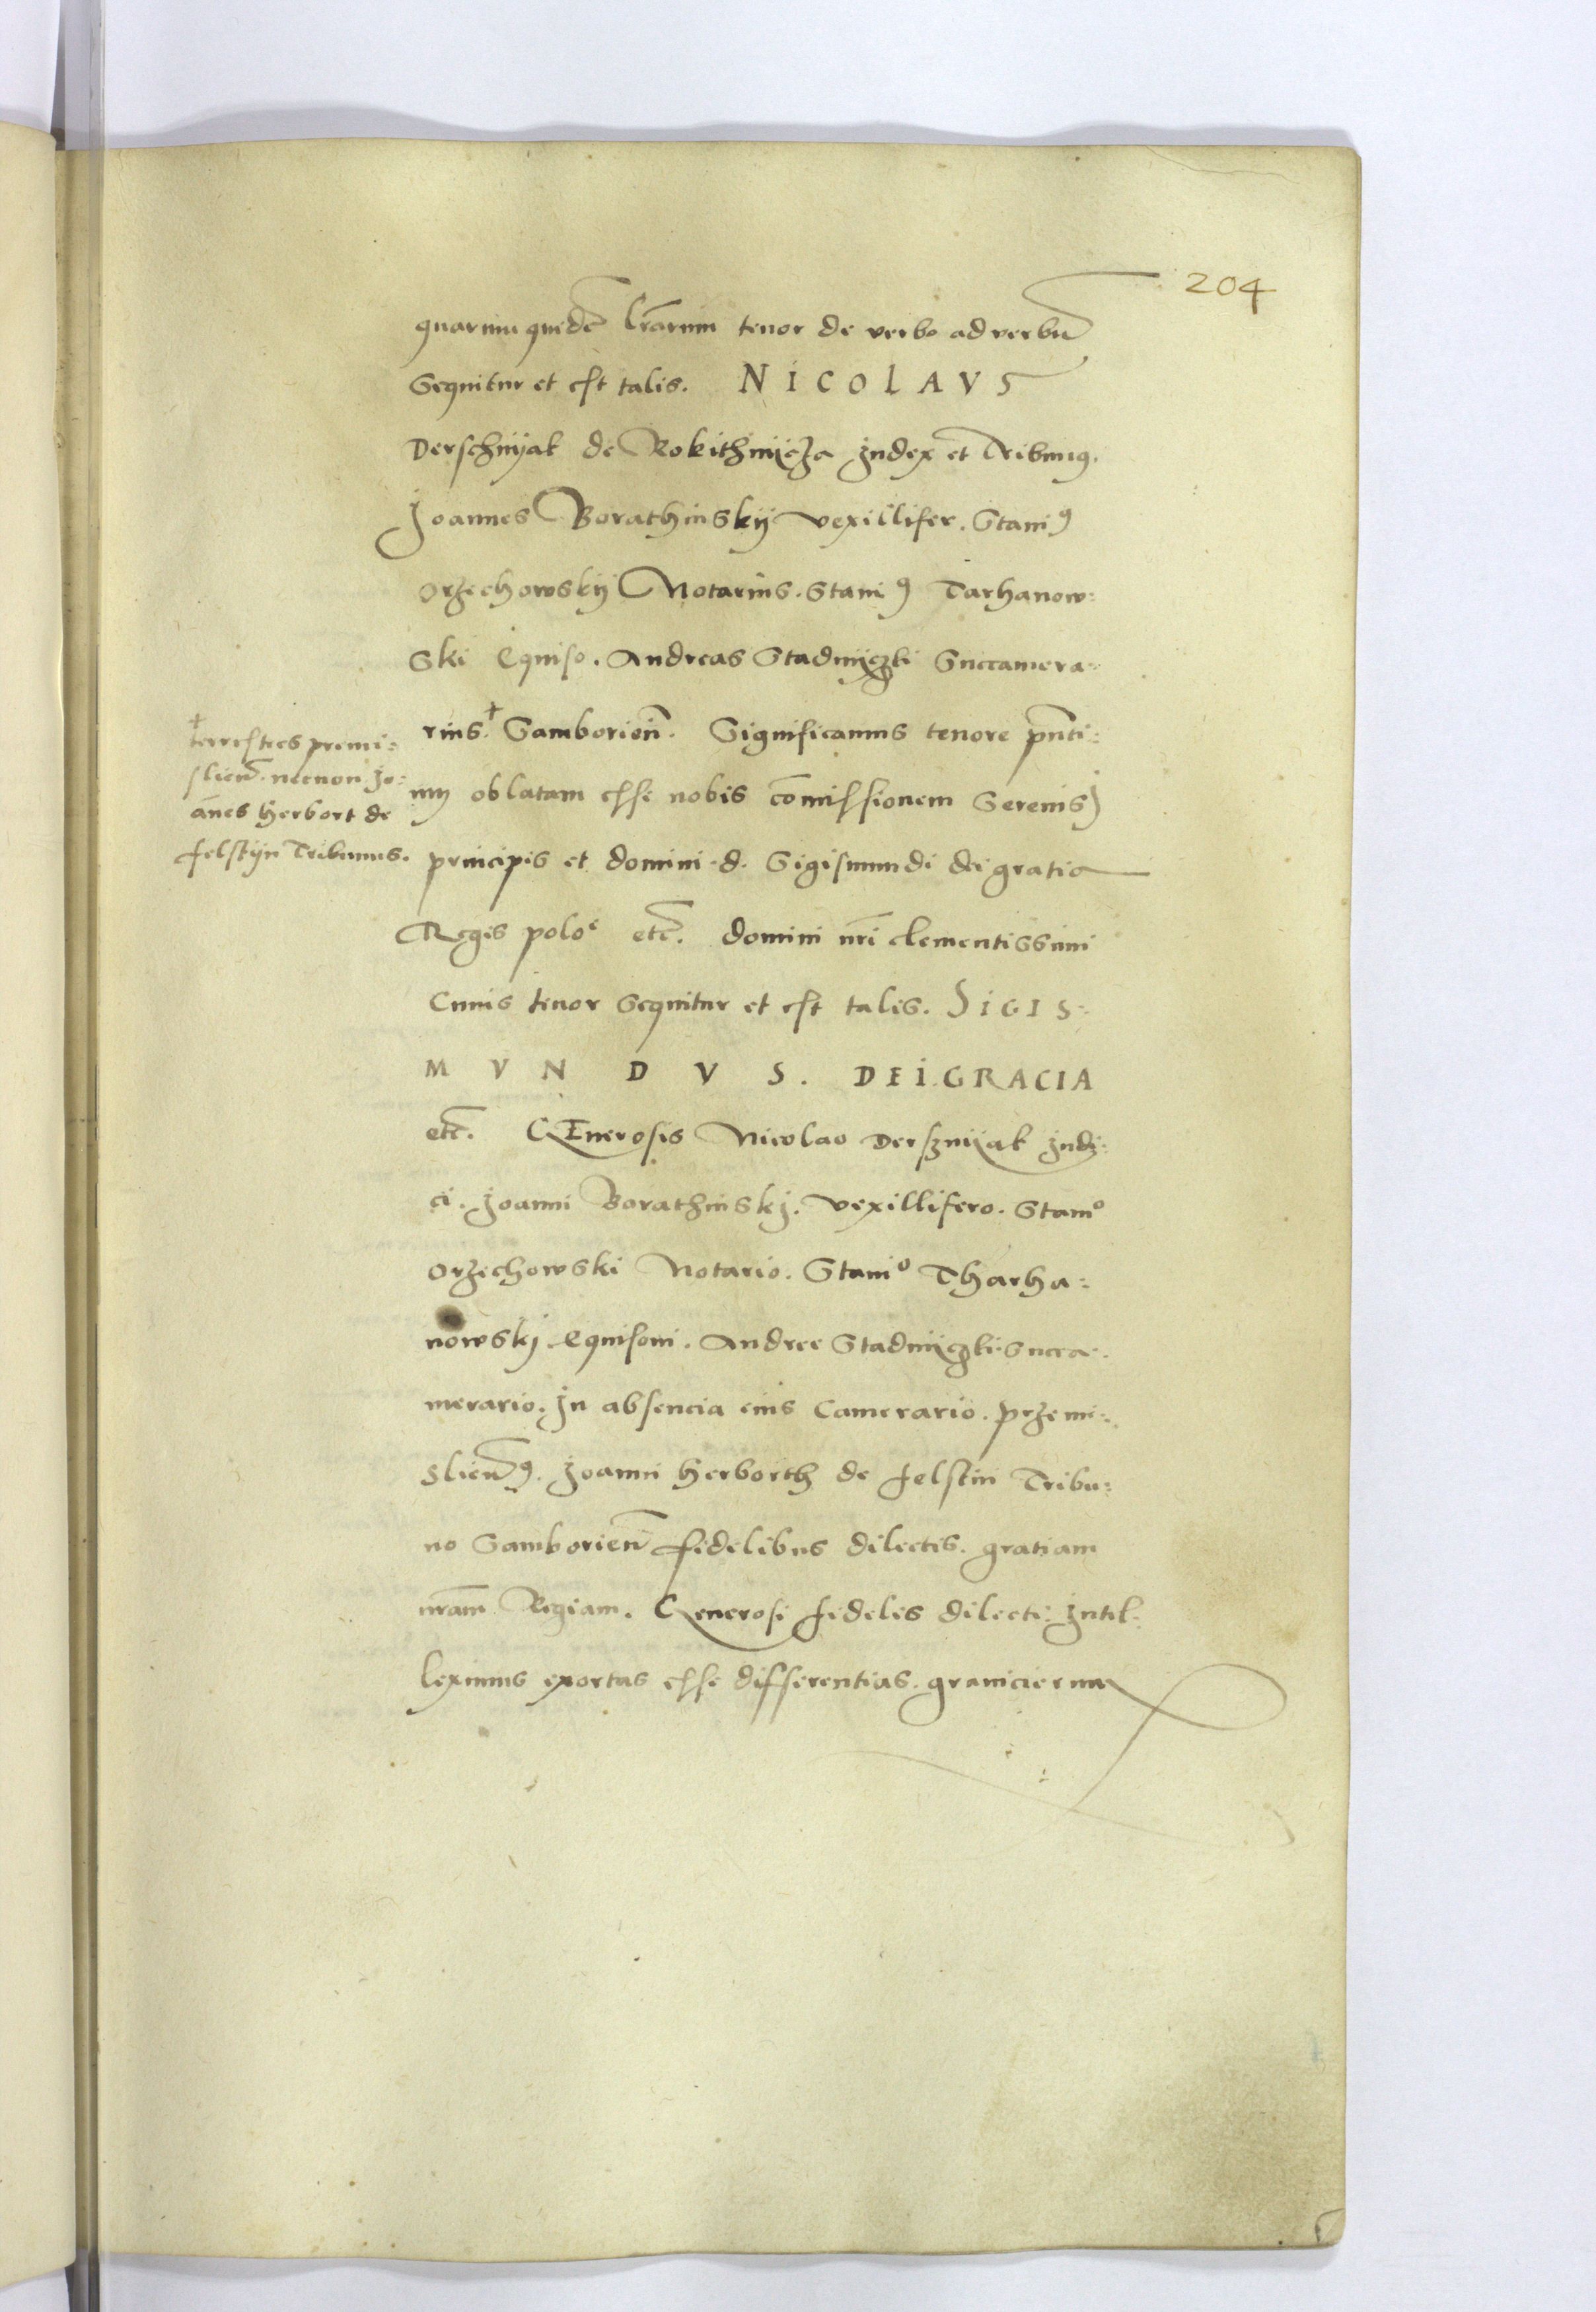 204
quarum quidē lr̄arum tenor de verbo ad verbū
Sequitur et est talis. NICOLAVS
Derschnijak de Rokithnijcza Judex et Tribunus.
Joannes Borathinskij vexillifer. Stani9
Orzechowskij Notarius. Stani9 Tarhanow:
Ski Equiso. Andreas Stadnijczki Succamera:
rius.† Samborien̄. Significamus tenore pn̄ti:
um oblatam esse nobis com̄issionem Serenis)
principis et domini d. Sigismundi dei gratia
Regis polo^e etc̄. domini nr̄i clementissimi
Cuius tenor Sequitur et est talis. SIGIS:
MVNDVS. DEI GRACIA
etc̄. GEnerosis Nicolao Dersznijak Judi:
ci. Joanni Borathinskj. vexillifero. Stani^o
Orzechowski Notario. Stani^o Tharha:
nowskj Equisoni. Andree Stadnijczki Succa:
merario. In absencia eius Camerario. przemi:
Slien̄9. Joanni Herborth de felstin Tribu:
no Samborien̄ fidelibus dilectis. gratiam
nr̄am Regiam. Generosi fideles dilecti. Intel:
leximus exortas esse differentias. granicierum
† terrestres premi:
slien̄. necnon Jo:
an̄es Herbort de
felstijn Tribunus.